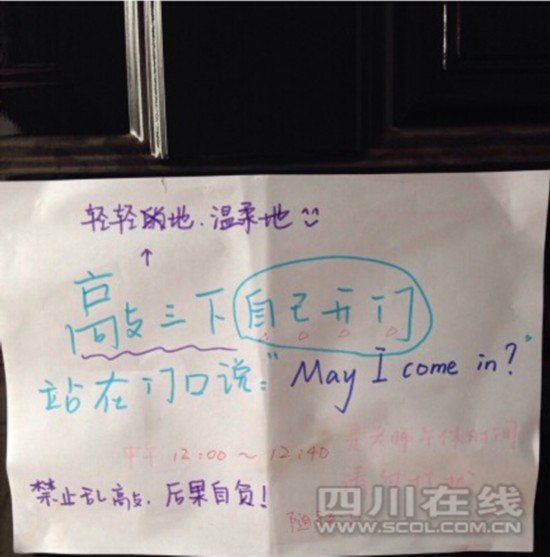 轻轻地.温柔地
↑
敲三下自己开门
站在门口说:"May I come in?"
中午 12:00～12:40 是老师午休时间
请勿打扰
禁止乱敲.后果自负!
四川在线
WWW.SCOL.COM.CN